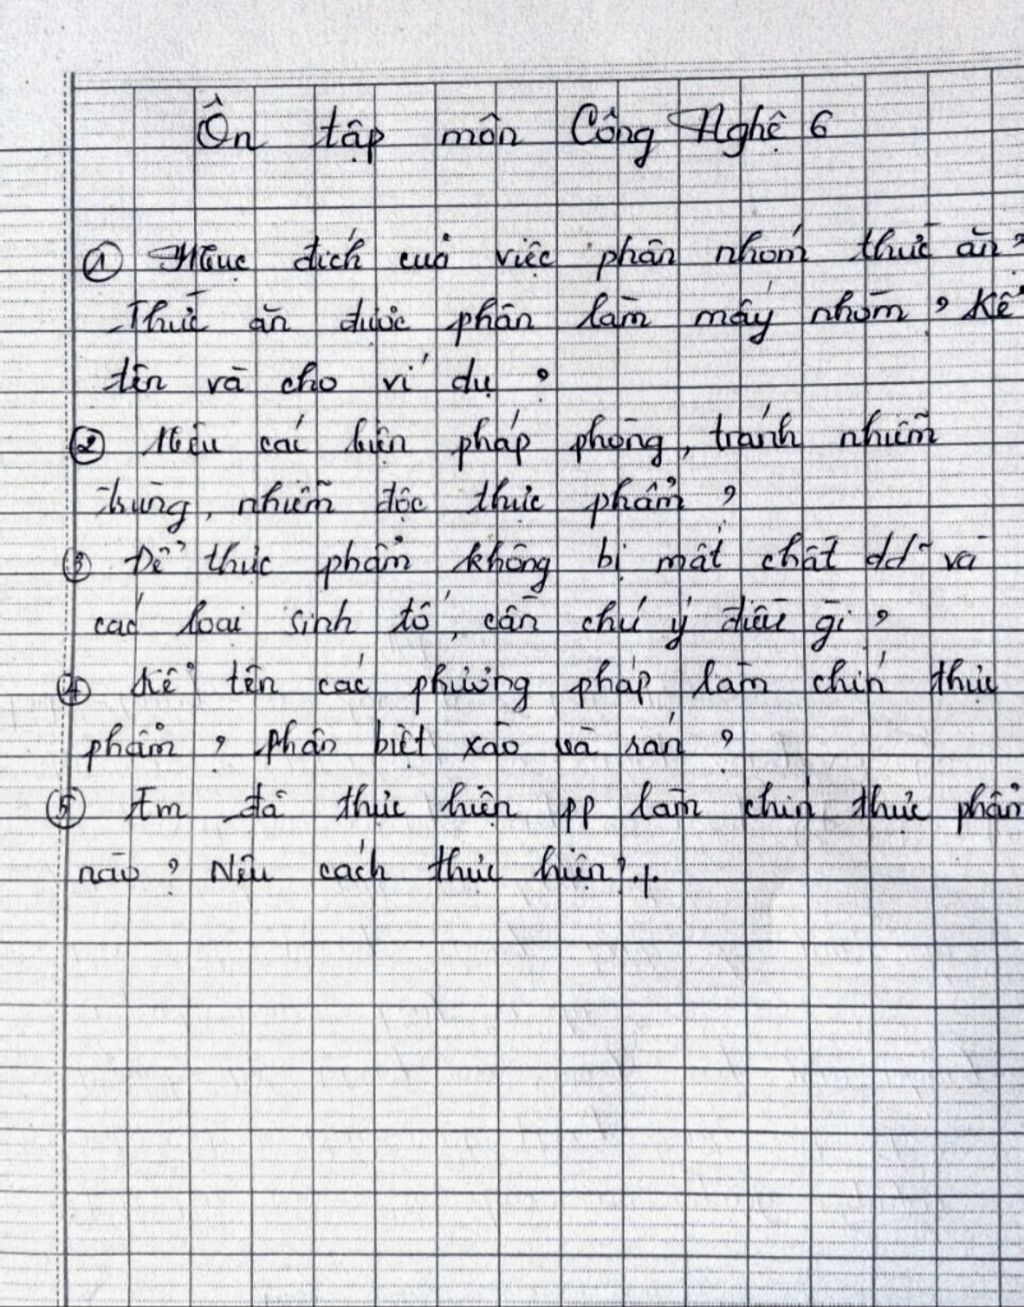 Ôn tập môn Công Nghệ 6
① Mục đích của việc phân nhóm thức ăn?
Thức ăn được phân làm mấy nhóm? Kể
tên và cho ví dụ?
② Nêu các biện pháp phòng, tránh nhiễm
trùng, nhiễm độc thực phẩm?
③ Để thực phẩm không bị mất chất dd và
các loại sinh tố, cần chú ý điều gì?
④ Kể tên các phương pháp làm chín thực
phẩm? Phân biệt xào và rán?
⑤ Em đã thực hiện pp làm chín thực phẩm
nào? Nêu cách thực hiện?./.